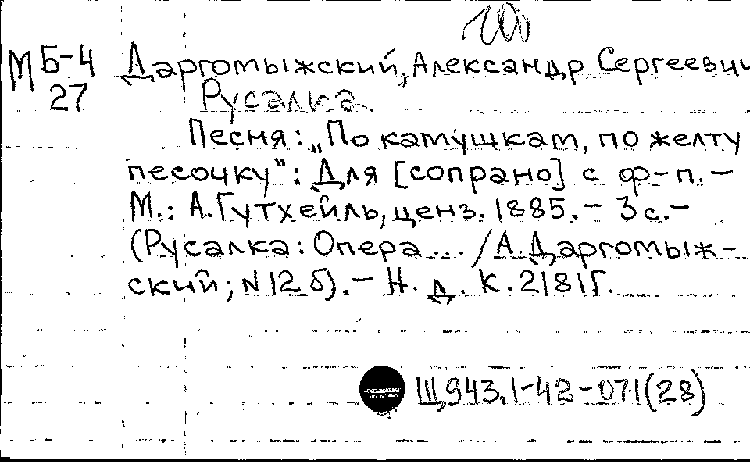 200
М Б-4 Даргомыжский, Александр Сергеевич
27 Русалка.
Песня: „По камушкам, по желту
песочку": Для [сопрано] с ф-п. –
М.: А. Гутхейль, ценз. 1885. – 3 с. –
(Русалка: Опера... / А. Даргомыж-
ский; N 12 б). – Н. д. К. 2181 Г.
Щ943.1-42-071(28)